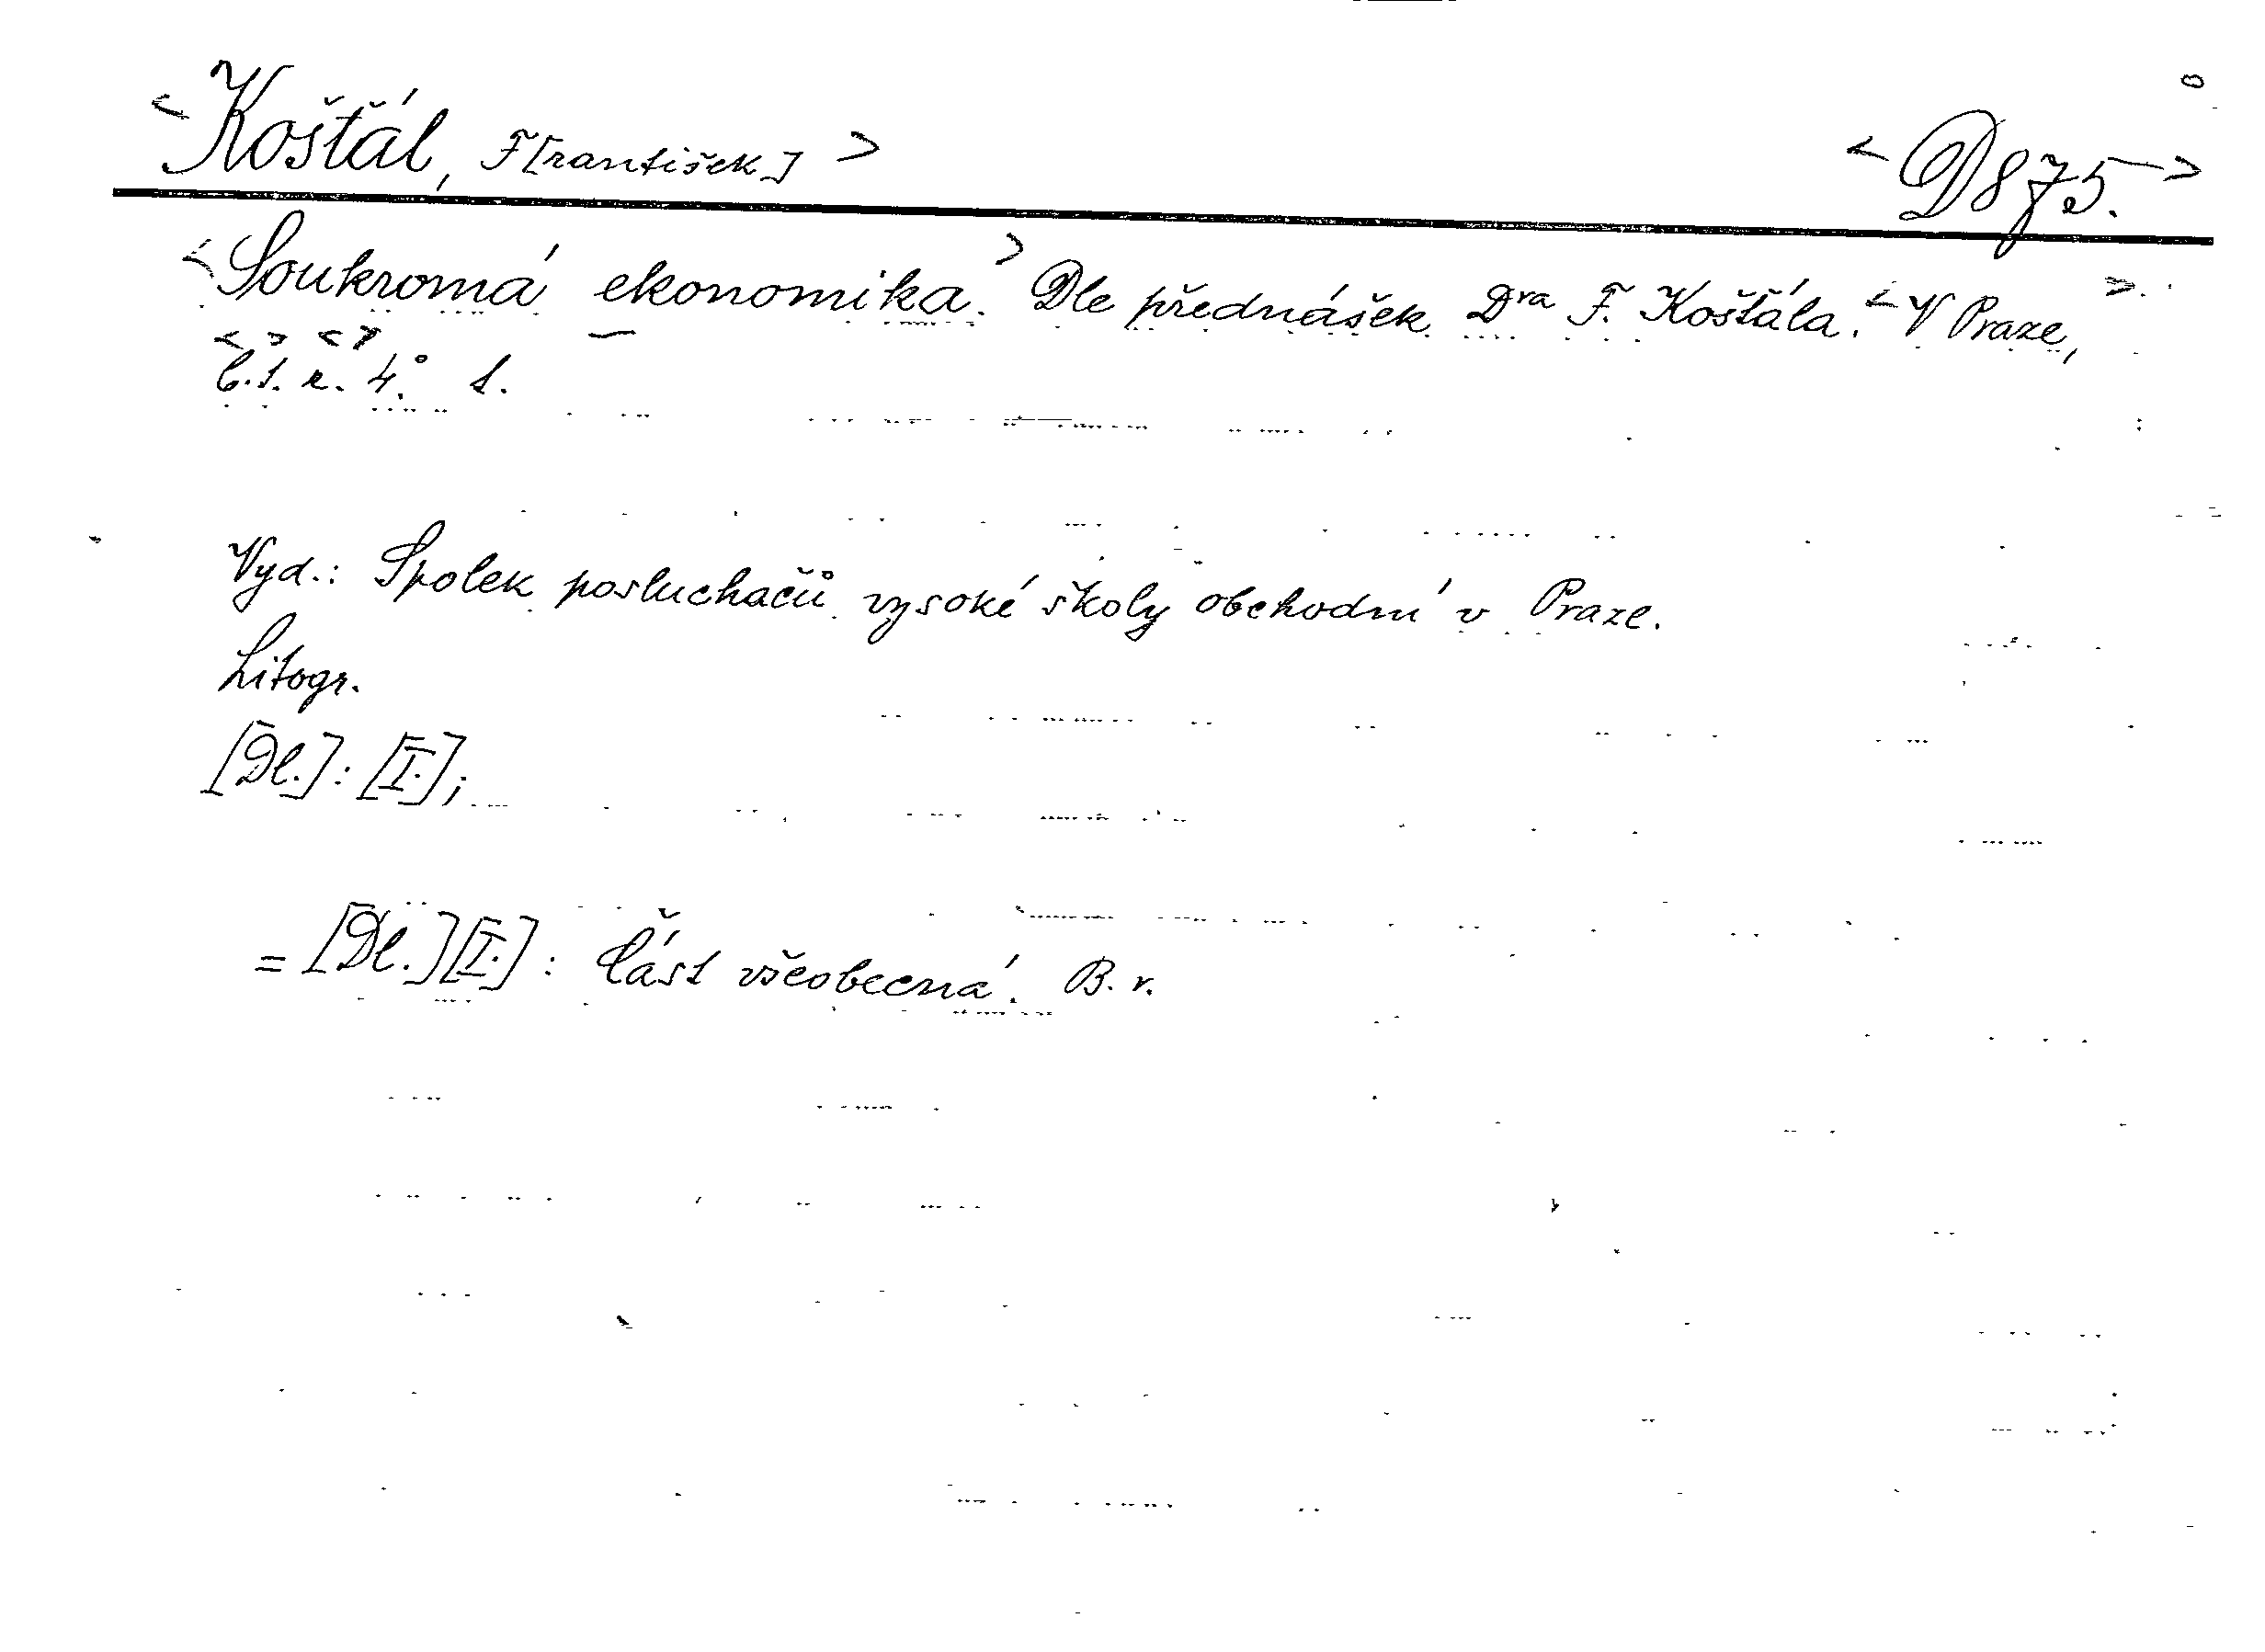 <Košťál, F[rantišek]> <D875.>
<Soukromá ekonomika.> Dle přednášek Dra F. Košťála. <V Praze,>
<b.t.> <r.> 4.° 1.
Vyd.: Spolek posluchačů vysoké školy obchodní v Praze.
Litogr.
[Dl.]: [I.];
= [Dl.][I.]: Část všeobecná. B. r.